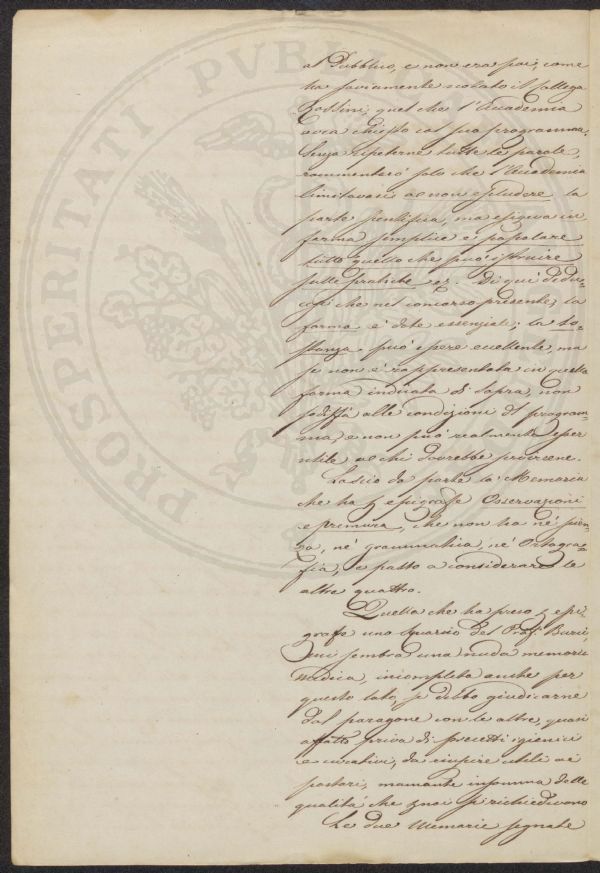 PROSPERITATI PUBLICAE
al Pubblico, e non era poi, come
ha saviamente notato il Collega
quel che l'Accademia
avea chiesto col suo programma.
Senza ripeterne tutte le parole,
rammenterò solo che l'Accademia
limitavasi a non escludere la
parte scientifica, ma esigeva in
forma semplice e popolare
tutto quello che può istruire
sulle pratiche ec. Di qui dedu-
cesi che nel concorso presente, la
forma è dote essenziale; la so-
stanza può essere eccellente, ma
se non è rappresentata in quella
forma indicata di sopra, non
soddisfà alle condizioni del program-
ma, e non può realmente esser
utile a chi dovrebbe servirsene.
Lascio da parte la Memoria
che ha p epigrafe Osservazioni
e premura, che non ha nè scien-
za, nè grammatica, nè Ortogra-
fia, e passo a considerare le
altre quattro.
Quella che ha preso p epi-
grafe uno squarcio del Prof.
mi sembra una nuda memoria
medica, incompleta anche per
questo lato, se debbo giudicarne
dal paragone con le altre, quasi
affatto priva di precetti igienici
e curativi, da riuscire utili ai
pastori, mancante insomma delle
qualità che qui si richiedevano
Le due Memorie segnate